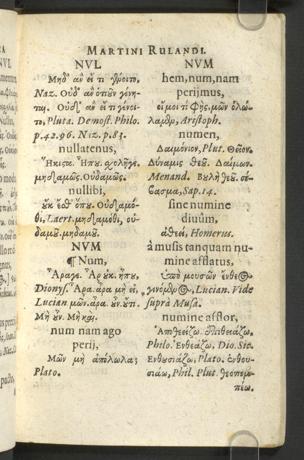 MARTINI RULANDI.
NVL
Μηδ' ἂν εἴ τι γένοιτο,
Naz. Οὐδ' ἂν
Οὐδ' ἂν εἴ τι γένοι-
το, Pluta. Demost. Philo.
p.42.96. Niz. p.83.
nullatenus,
Ἥκιστα. Ἥπου.
μηδαμῶς. Οὐδαμῶς.
nullibi,
οὐδαμό-
θι, Laert. μηδαμόθι, οὐ-
δαμοῦ. μηδαμοῦ.
NVM
¶ Num,
Ἆραγε. Ἆρ' οὐκ. ἤπου,
Dionys. Ἆρα. ἆρα μὴ
Lucian. μῶν. ἆρα.
Μὴ οὖν. Μὴ
num nam ago
perij,
Μῶν μὴ ἀπόλωλα;
Plato.
NVM
hem, num, nam
perijmus,
εἰπέ μοι τί φῄς, μῶν ὀλώ-
λαμεν, Aristoph.
numen,
Δαιμόνιον, Plut. Θεῖον.
Δύναμις θεοῦ. Δαίμων.
Menand. Βουλὴ θεοῦ. σέ-
βασμα, Sap. 14.
sine numine
diuûm,
ἀθεεί, Homerus.
à musis tanquam nu-
mine afflatus,
Ὑπὸ μουσῶν ἔνθεος
γενόμενος, Lucian. Vide
suprà Musa.
numine afflor,
Ἐπιθειάζω.
Philo. Ἐνθεάζω, Dio. Sic.
Ἐνθουσιάζω, Plato. ἐνθου-
σιάω, Phil. Plut. θεοπρο-
πέω.